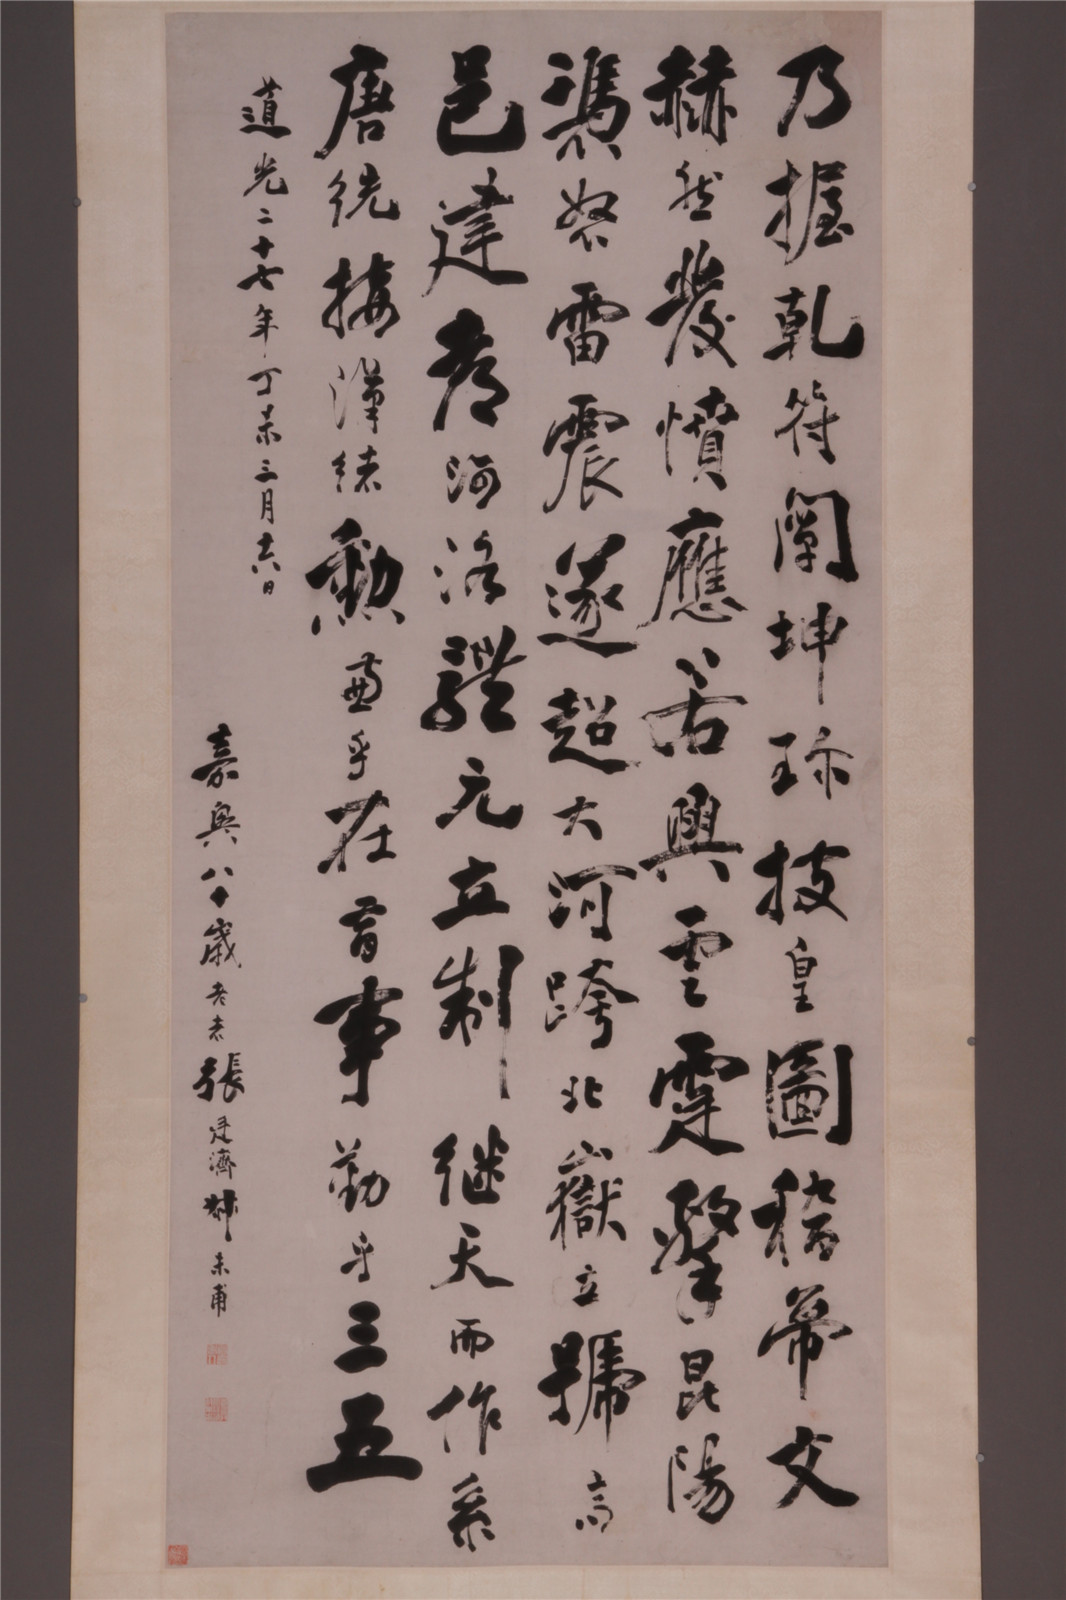 乃握乾符闡坤珍披皇圖稽帝文
赫然發憤應若興雲霆擊昆陽
憑怒雷震遂超大河跨北嶽立號高
邑建都河洛體元立制继天而作系
唐統接漢緒勳兼乎在昔事勤乎三五
道光二十七年丁未三月十六日
嘉興八十歲老者張廷濟叔未甫